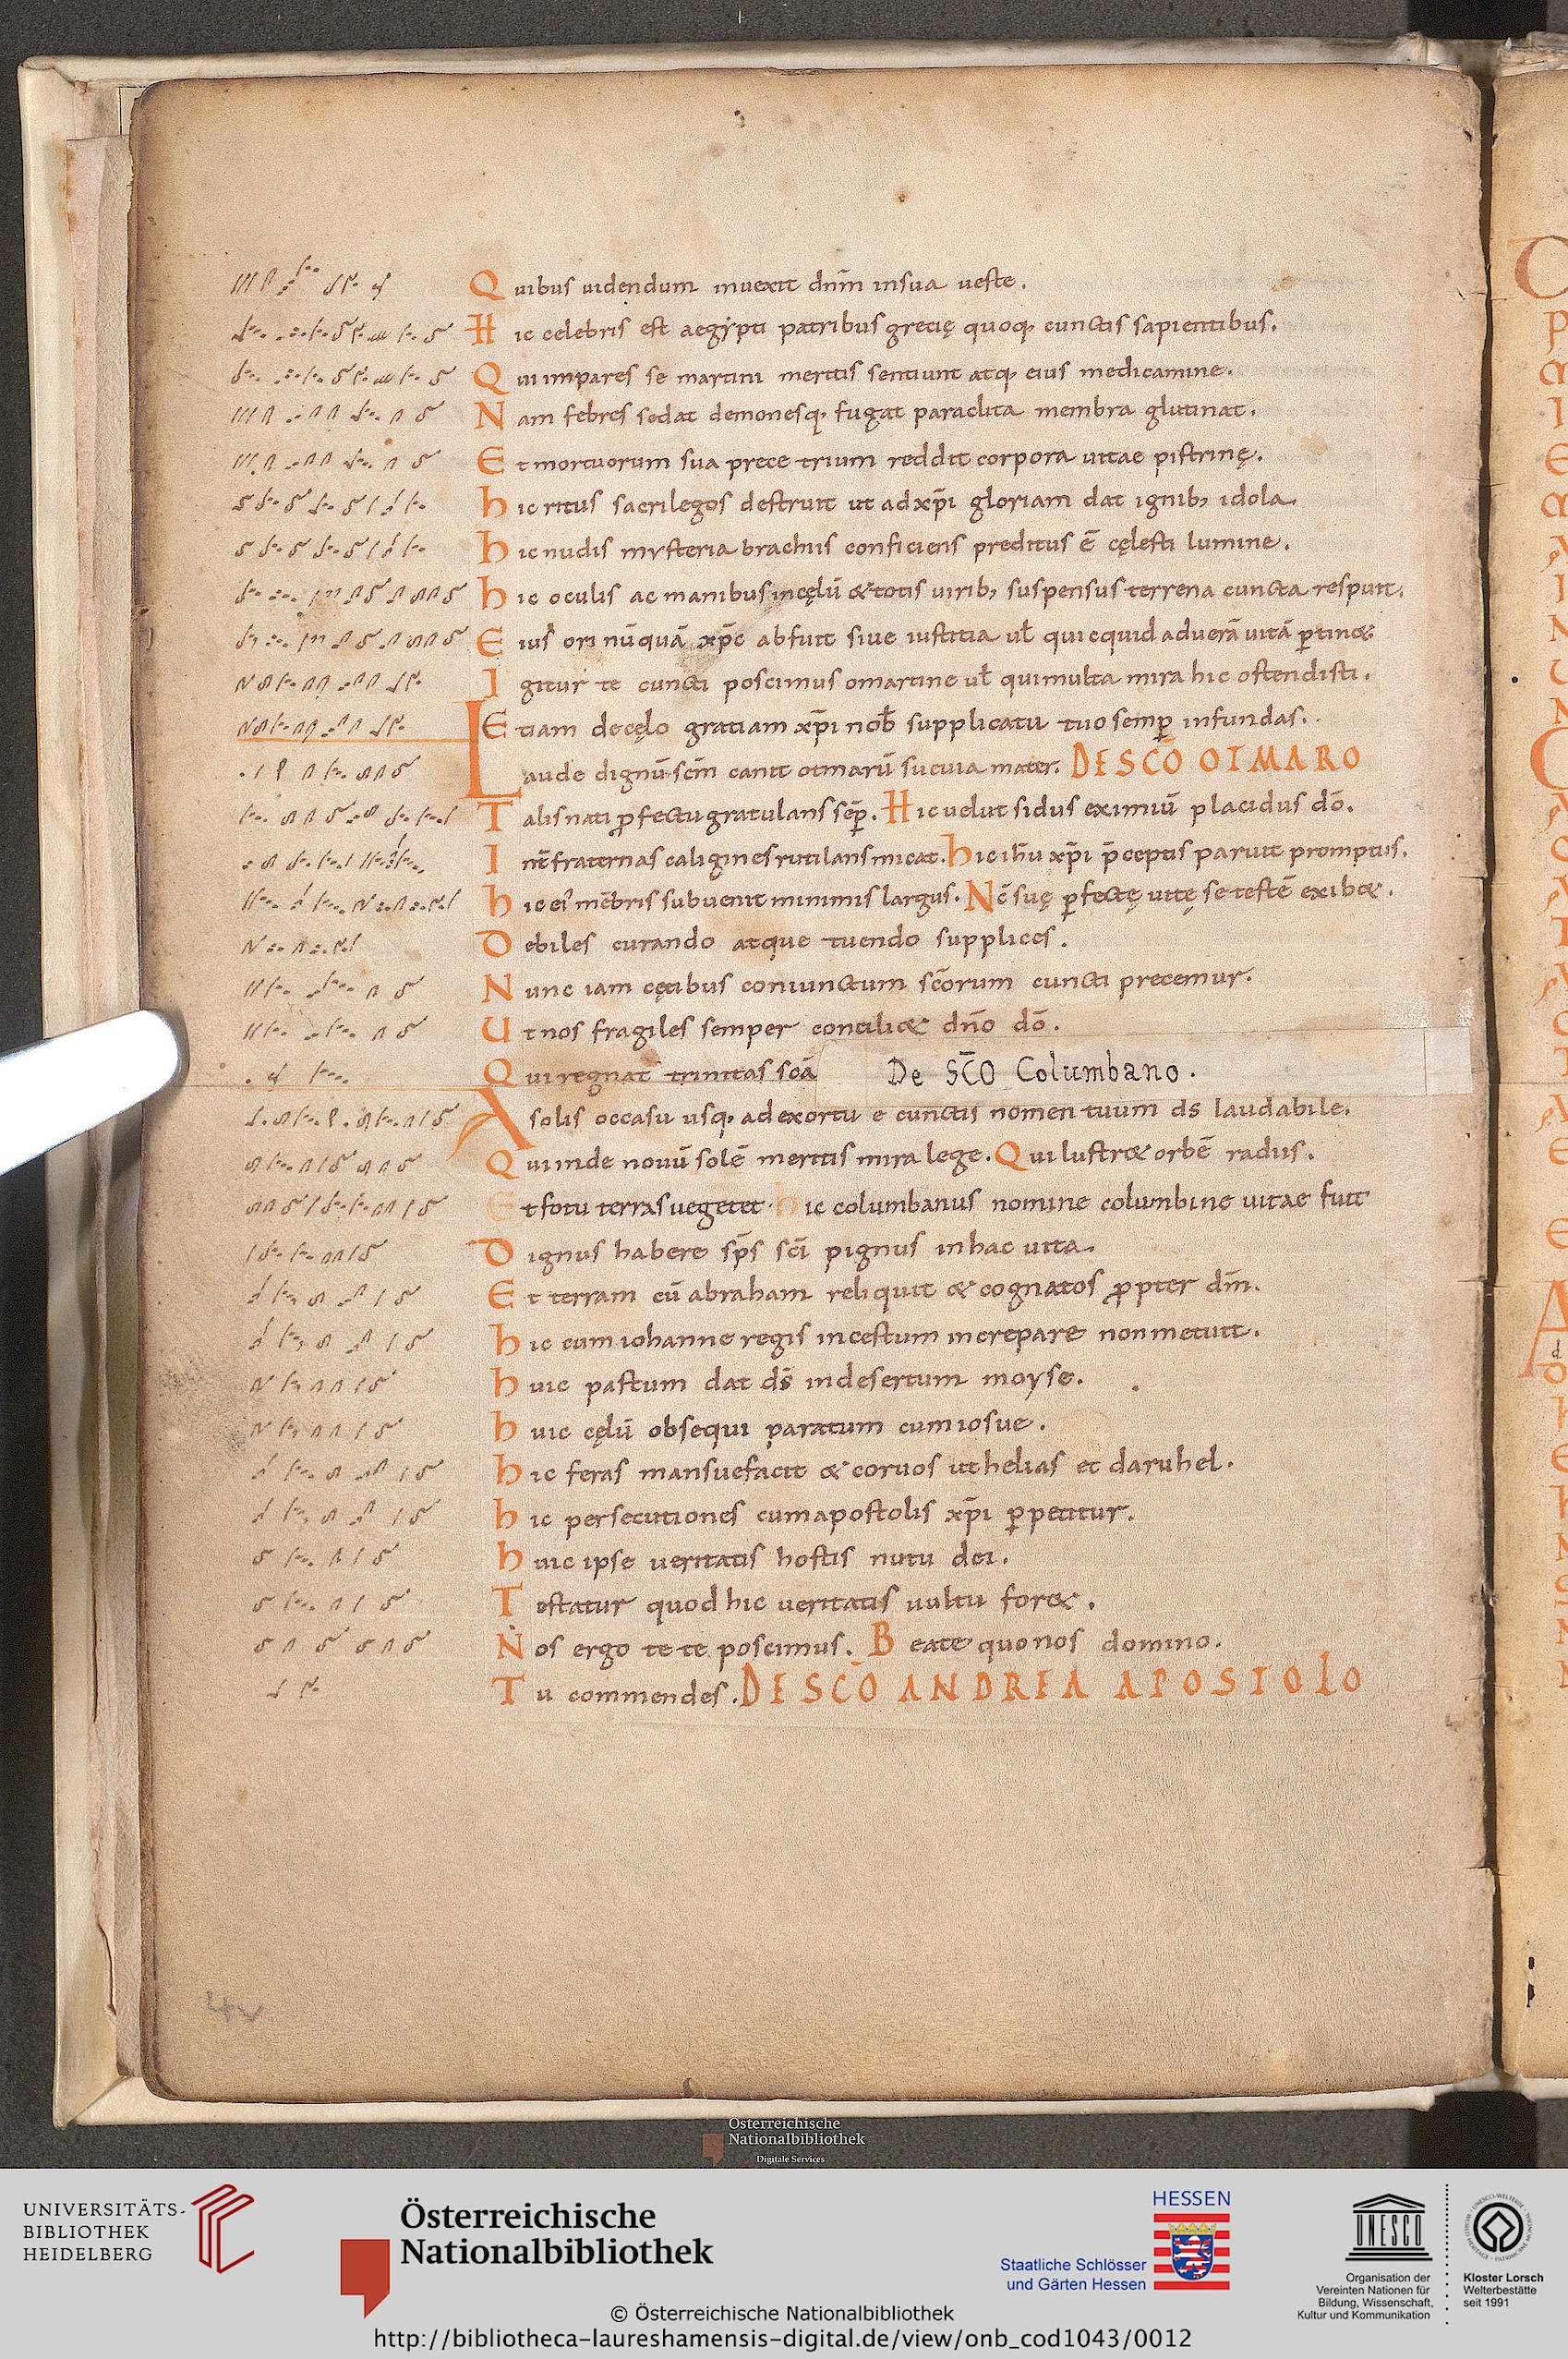 Quibus uidendum inuexit dn̄m insua ueste.
Hic celebris est aegypti patribus grecię quoq, cunctis sapientibus.
Qui impares se martini meritis sentiunt atq, eius medicamine.
Nam febres sedat demonesq, fugat paraclita membra glutinat.
Et mortuorum sua prece trium reddit corpora uitae pistrinę.
hic ritus sacrilegos destruit ut ad xp̄i gloriam dat ignib, idola.
hic nudis mysteria brachiis conficiens preditus ē cęlesti lumine.
hic oculis ac manibus in cęlū & totis uirib, suspensus terrena cuncta respuit.
Eius ori nūquā xp̄c abfuit siue iustitia ul̄ quicquid aduerā uitā ꝑtin&.
Igitur te cuncti poscimus omartine ul̄ quimulta mira hic ostendisti.
Etiam decęlo gratiam xp̄i nob̄ supplicatu tuo semꝑ infundas.
Laude dignū scm̄ canit otmarū sueuia mater. DE SC̄O OTMARO
Talis nati ꝓfectu gratulans sēꝑ. Hic uelut sidus eximiū placidus dō.
Int̄ fraternas caligines rutilans micat. hic ih̄u xp̄i p̄ceptis paruit promptus.
hic ei mēbris subuenit minimis largus. Nē suę ꝑfectę uitę se testē exib&.
Debiles curando atque tuendo supplices.
Nunc iam cętibus coniunctum sc̄orum cuncti precemur.
Ut nos fragiles semper concili& dn̄o dō.
Qui regnat trinitas scā De SC̄O Columbano.
A solis occasu usq, ad exortu e cunctis nomen tuum ds laudabile.
Qui inde nouū solē meritis mira lege. Qui lustr& orbē radiis.
Et fotu terras uegetet. hic columbanus nomine columbine uitae fuit
Dignus habere sp̄s sc̄i pignus in hac uita.
Et terram cū abraham reliquit & cognatos ꝓpter dm̄.
hic cum iohanne regis incestum increpare non metuit.
huic pastum dat ds̄ indesertum moyse.
huic cęlū obsequi paratum cum iosue.
hic feras mansuefacit & coruos ut helias et daruhel.
hic persecutiones cum apostolis xp̄i ꝑpetitur.
huic ipse ueritatis hostis nutu dei.
Testatur quod hic ueritatis uultu for&.
Nos ergo te te poscimus. Beate quo nos domino.
Tu commendes. DE SC̄O ANDREA APOSTOLO
4v
Österreichische
Nationalbibliothek
Digitale Services
UNIVERSITÄTS-
BIBLIOTHEK
HEIDELBERG
Österreichische
Nationalbibliothek
HESSEN
Staatliche Schlösser
und Gärten Hessen
UNESCO
Organisation der
Vereinten Nationen für
Bildung, Wissenschaft,
Kultur und Kommunikation
Kloster Lorsch
Welterbestätte
seit 1991
© Österreichische Nationalbibliothek
http://bibliotheca-laureshamensis-digital.de/view/onb_cod1043/0012